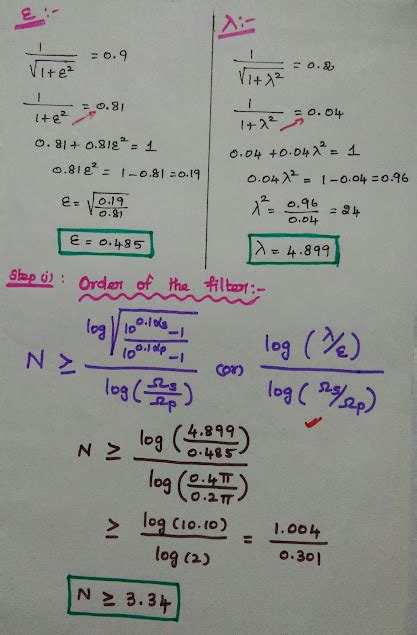 ε :-
1/√(1+ε²) = 0.9
1/(1+ε²) = 0.81
0.81 + 0.81ε² = 1
0.81ε² = 1 - 0.81 = 0.19
ε = √(0.19/0.81)
ε = 0.485
λ :-
1/√(1+λ²) = 0.2
1/(1+λ²) = 0.04
0.04 + 0.04λ² = 1
0.04λ² = 1 - 0.04 = 0.96
λ² = 0.96/0.04 = 24
λ = 4.899
Step (i) : Order of the filter:-
N ≥ log√((10^0.1αs - 1)/(10^0.1αp - 1)) / log(Ωs/Ωp) (or) log(λ/ε) / log(Ωs/Ωp)
N ≥ log(4.899/0.485) / log(0.4π/0.2π)
≥ log(10.10)/log(2) = 1.004/0.301
N ≥ 3.34